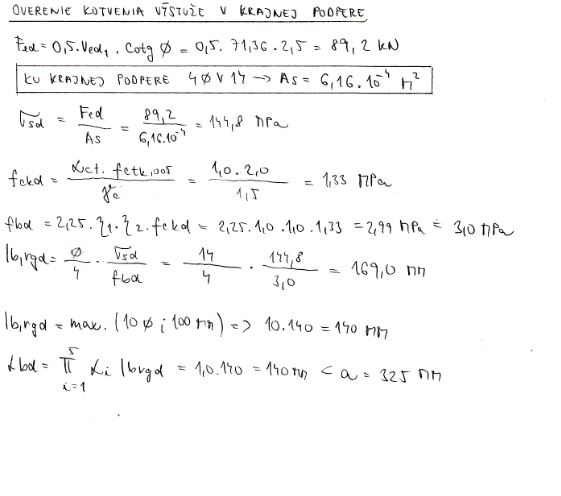 OVERENIE KOTVENIA VÝSTUŽE V KRAJNEJ PODPERE
Fed = 0,5. Ved1 . Cotg Ø = 0,5. 71,36 . 2,5 = 89,2 kN
KU KRAJNEJ PODPERE 4 Ø V 14 → As = 6,16.10⁻⁴ m²
σsd = Fed / As = 89,2 / 6,16.10⁻⁴ = 144,8 MPa
fckd = αct. fctk,005 / γc = 1,0. 2,0 / 1,5 = 1,33 MPa
fbd = 2,25. η1. η2. fckd = 2,25. 1,0 . 1,0 . 1,33 = 2,99 MPa ≐ 3,0 MPa
lb,rgd = Ø / 4 . σsd / fbd = 14 / 4 . 144,8 / 3,0 = 169,0 mm
lb,rgd = max. (10 Ø ; 100 mm) => 10.140 = 140 mm
lbd = 5 ∏ i=1 αi lbrgd = 1,0. 140 = 140 mm < a = 325 mm